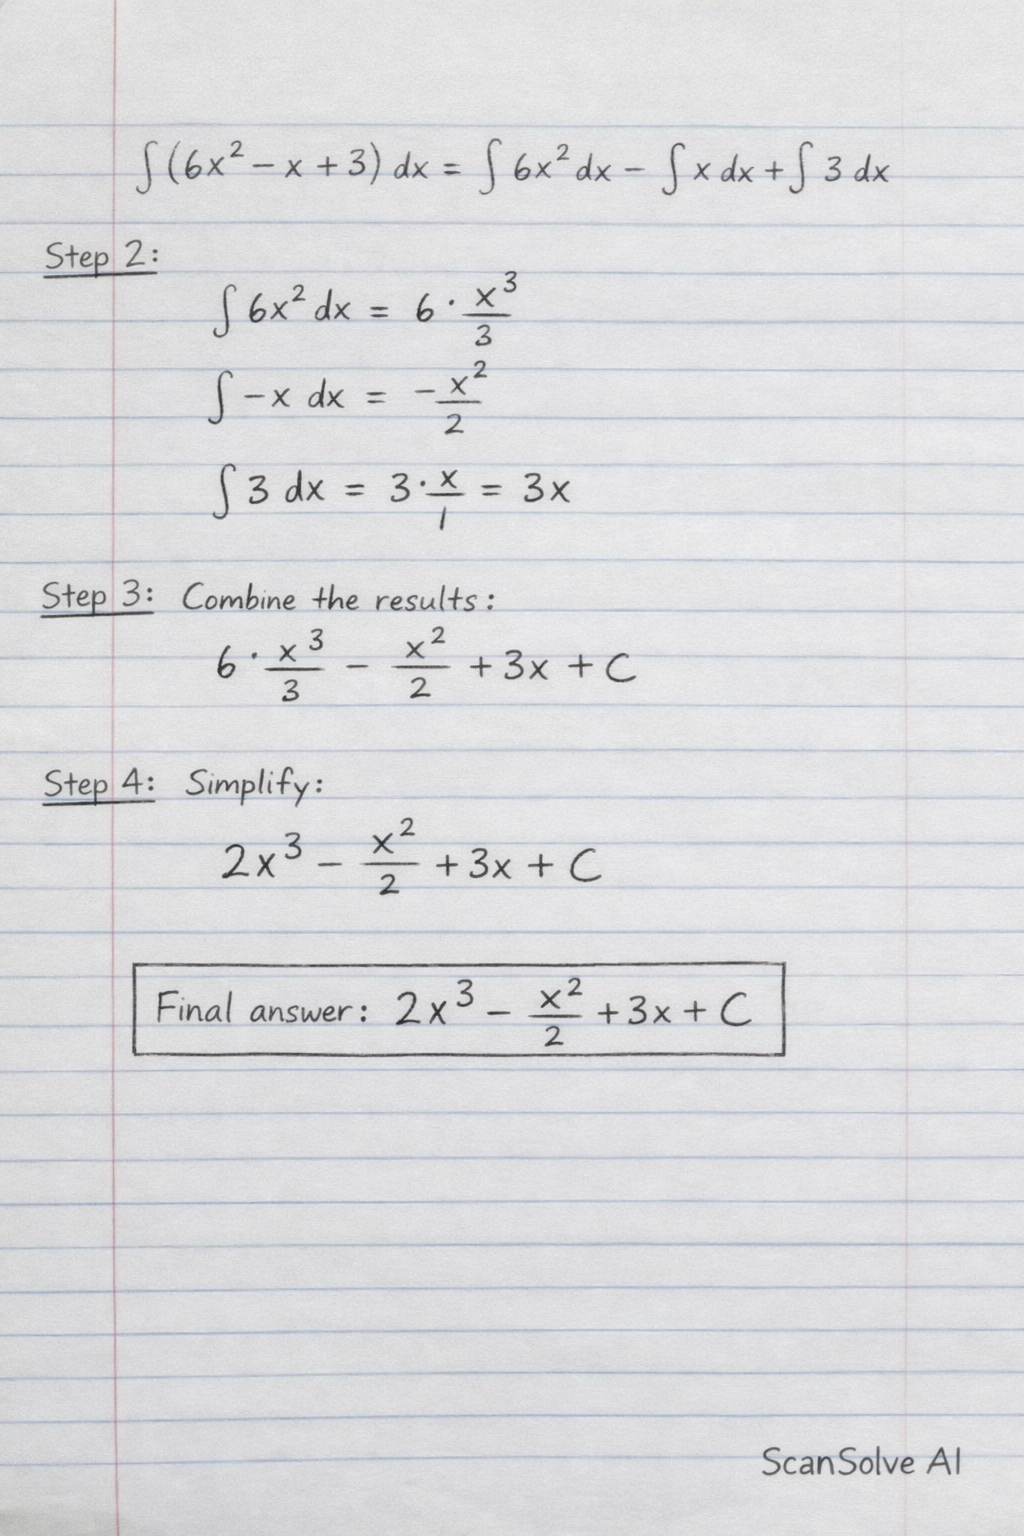 ∫(6x² − x + 3) dx = ∫ 6x² dx − ∫ x dx + ∫ 3 dx
Step 2:
∫ 6x² dx = 6 · x³/3
∫ −x dx = −x²/2
∫ 3 dx = 3 · x/1 = 3x
Step 3: Combine the results:
6 · x³/3 − x²/2 + 3x + C
Step 4: Simplify:
2x³ − x²/2 + 3x + C
Final answer: 2x³ − x²/2 + 3x + C
ScanSolve AI